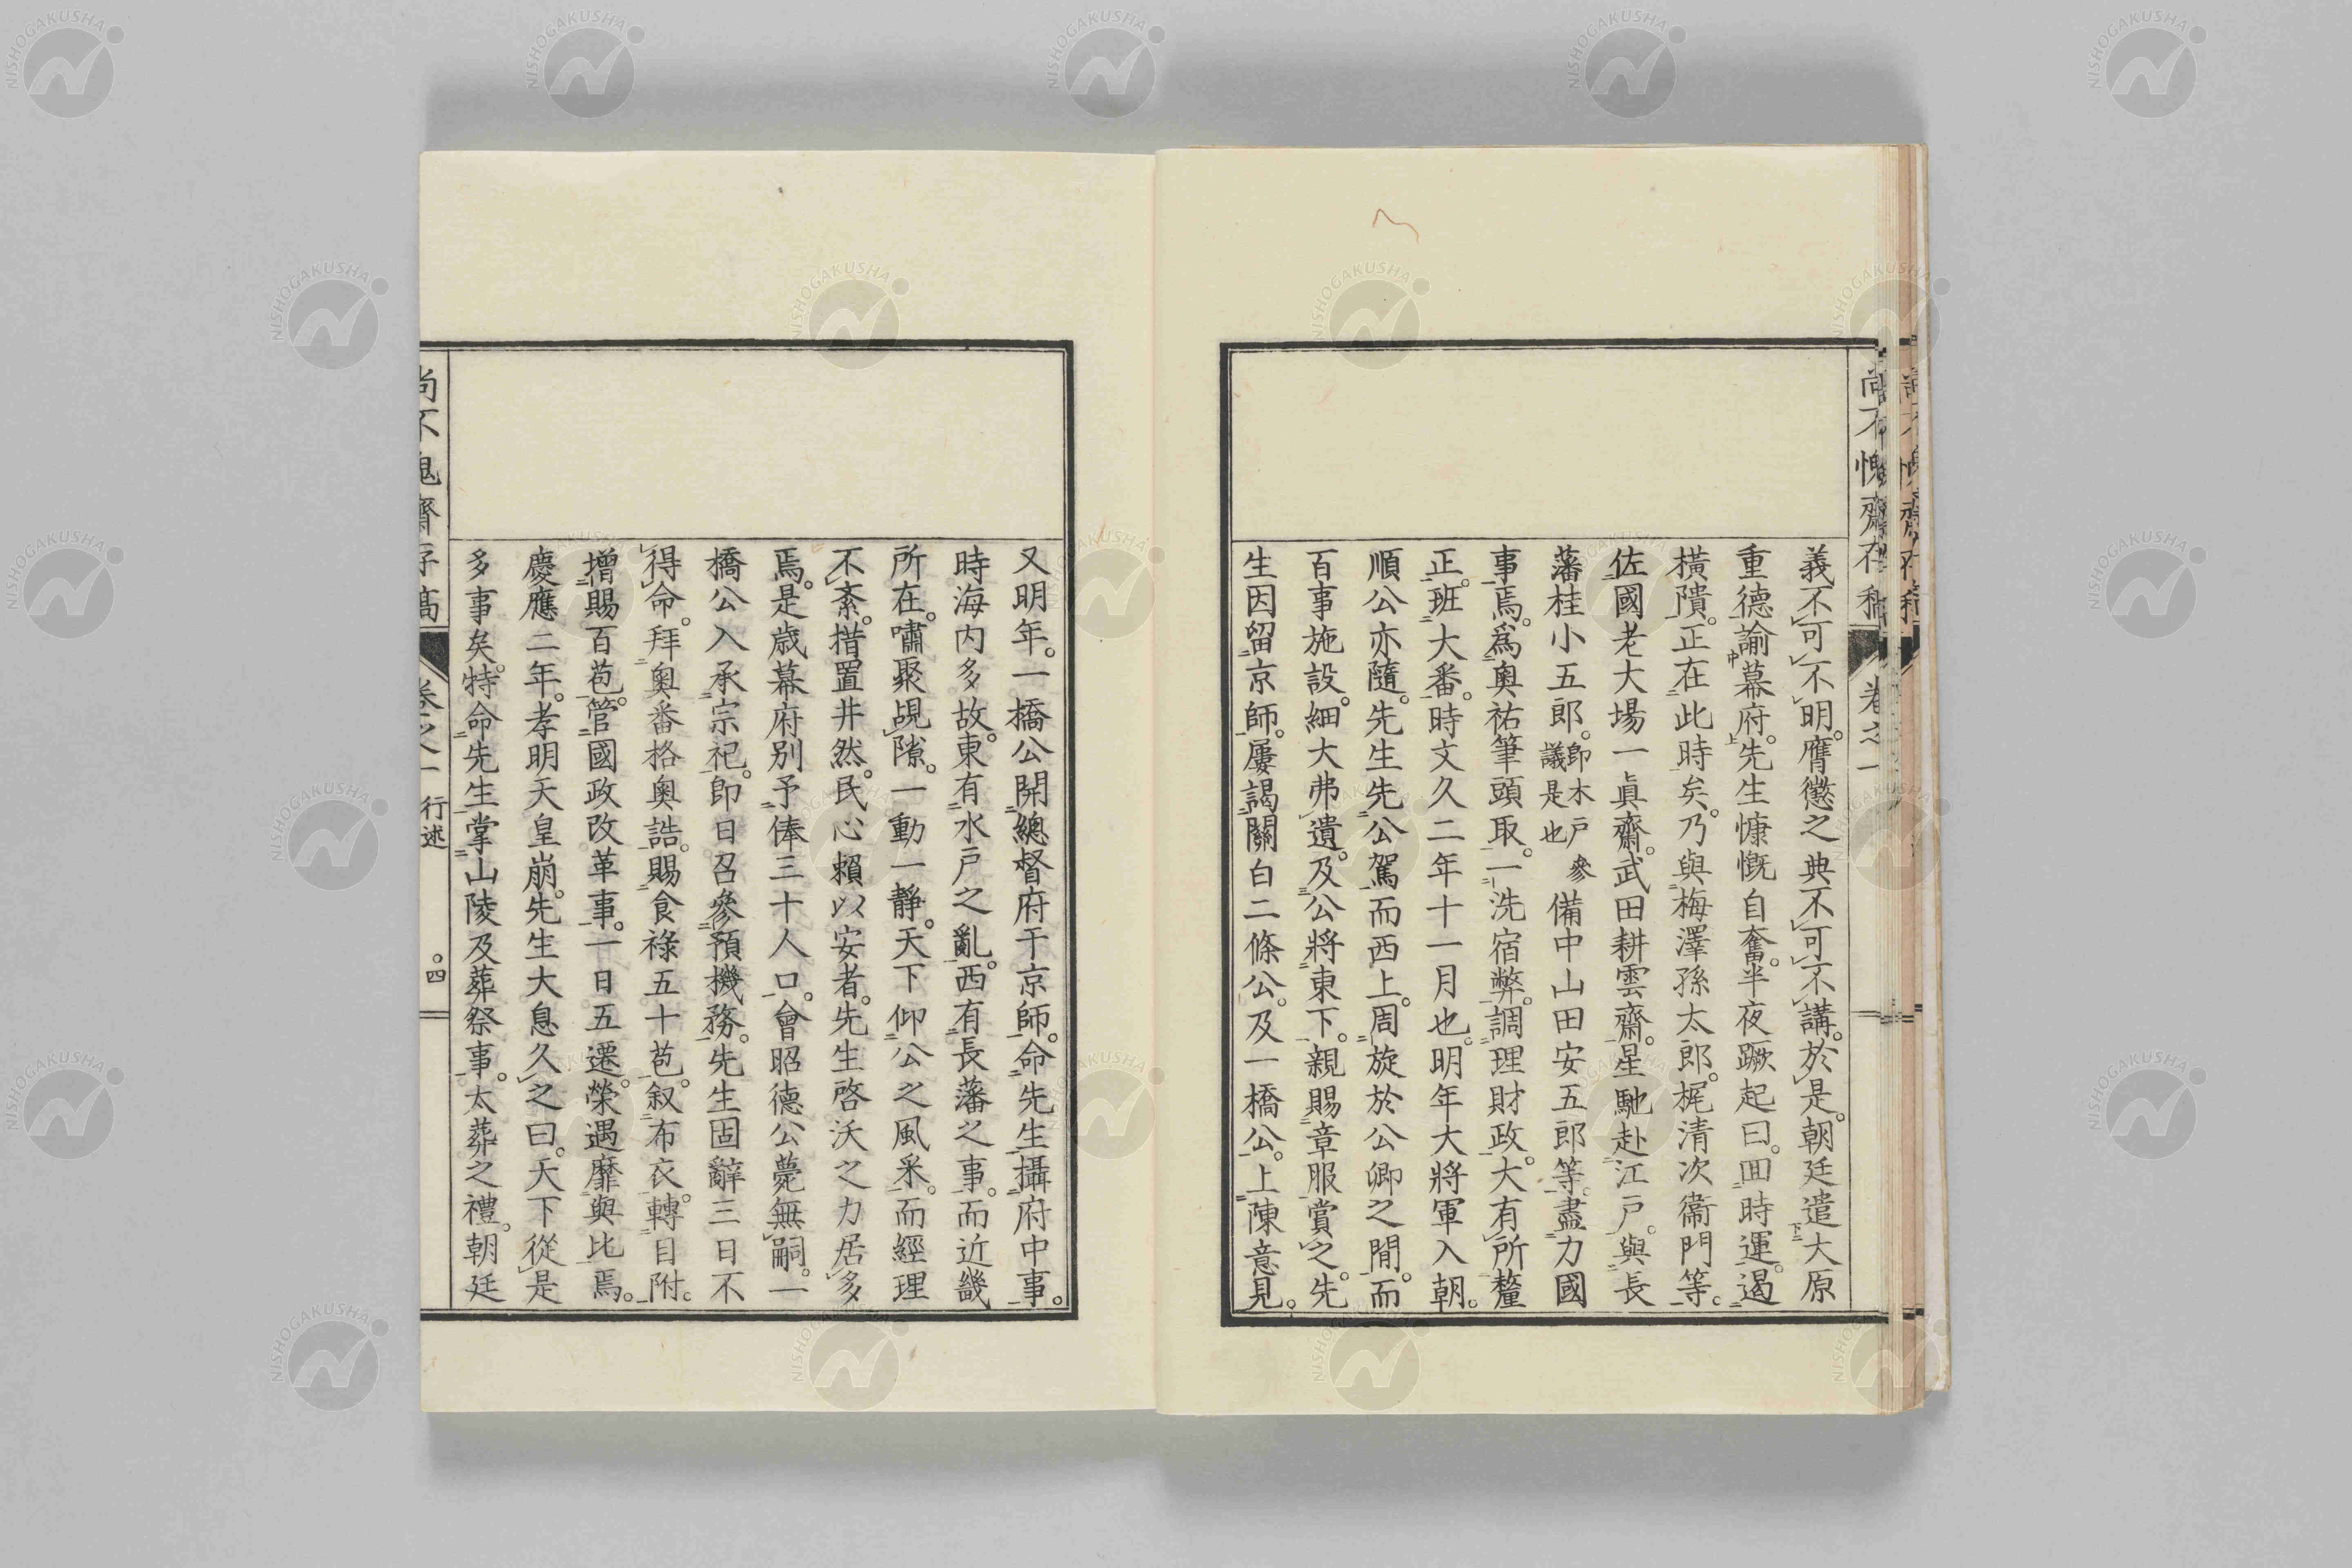 尚不愧齋存稿 卷之一
義不可不明。膺懲之典不可不講。於是。朝廷遣大原
重德諭幕府。先生慷慨自奮。半夜蹶起曰。回時運。遏
橫隤。正在此時矣。乃與梅澤孫太郎。梶清次衞門等。
佐國老大場一眞齋。武田耕雲齋。星馳赴江戸。與長
藩桂小五郎。卽木戸參議是也備中山田安五郎等。盡力國
事焉。爲奧祐筆頭取。一洗宿弊。調理財政。大有所釐
正。班大番。時文久二年十一月也。明年大將軍入朝。
順公亦隨。先生先公駕而西上。周旋於公卿之間。而
百事施設。細大弗遺。及公將東下。親賜章服賞之。先
生因留京師。屢謁關白二條公。及一橋公。上陳意見。
又明年。一橋公開總督府于京師。命先生攝府中事。
時海内多故。東有水戸之亂。西有長藩之事。而近畿
所在。嘯聚覘隙。一動一靜。天下仰公之風采。而經理
不紊。措置井然。民心賴以安者。先生啓沃之力居多
焉。是歳幕府別予俸三十人口。會昭德公薨無嗣。一
橋公入承宗祀。卽日召參預機務。先生固辭三日不
得命。拜奧番格奧詰。賜食祿五十苞。叙布衣。轉目附。
增賜百苞。管國政改革事。一日五遷。榮遇靡與比焉。
慶應二年。孝明天皇崩。先生大息久之曰。天下從是
多事矣。特命先生掌山陵及葬祭事。太葬之禮。朝廷
尚不愧齋存稿 卷之一 行述 ○四
NISHOGAKUSHA